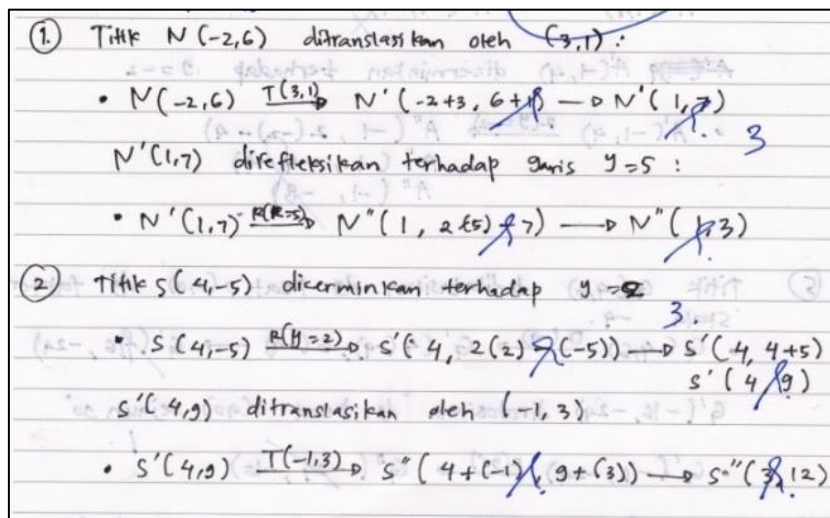 ① Titik N (-2,6) ditranslasikan oleh (3,1) :
• N(-2,6) T(3,1)→ N' (-2+3, 6+1) → N' (1,7)
3
N'(1,7) direfleksikan terhadap garis y=5 :
• N'(1,7) R(k=5)→ N" (1, 2(5)-7) → N" (1,3)
② Titik S(4,-5) dicerminkan terhadap y = 2
3.
• S(4,-5) R(y=2)→ S'(4, 2(2)-(-5)) → S'(4, 4+5)
S' (4,9)
S'(4,9) ditranslasikan oleh (-1, 3)
• S'(4,9) T(-1,3)→ S" (4+(-1), 9+(3)) → S" (3,12)